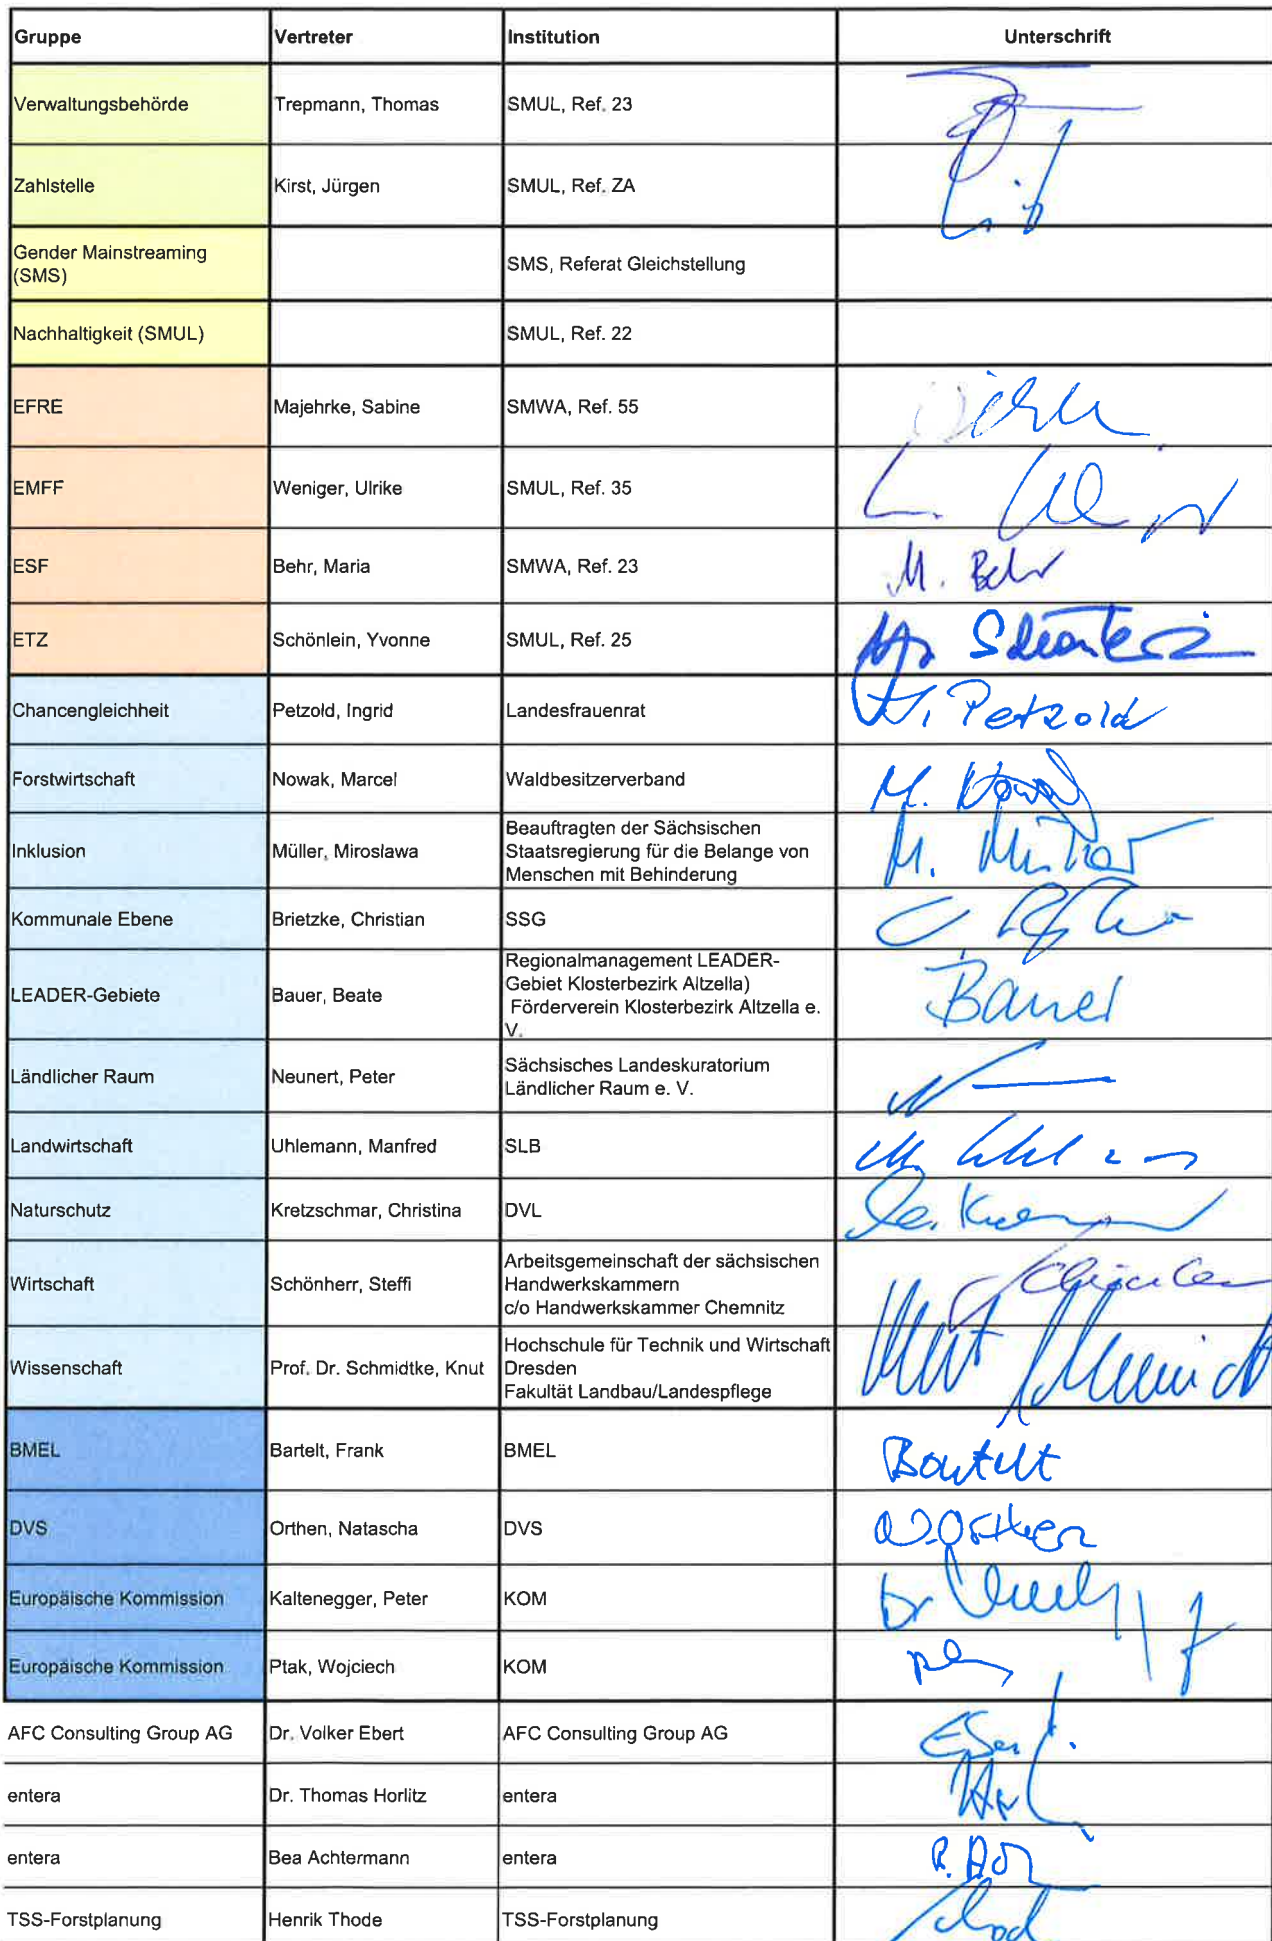 Gruppe Vertreter Institution Unterschrift
Verwaltungsbehörde Trepmann, Thomas SMUL, Ref. 23
Zahlstelle Kirst, Jürgen SMUL, Ref. ZA
Gender Mainstreaming
(SMS) SMS, Referat Gleichstellung
Nachhaltigkeit (SMUL) SMUL, Ref. 22
EFRE Majehrke, Sabine SMWA, Ref. 55
EMFF Weniger, Ulrike SMUL, Ref. 35
ESF Behr, Maria SMWA, Ref. 23 M. Behr
ETZ Schönlein, Yvonne SMUL, Ref. 25
Chancengleichheit Petzold, Ingrid Landesfrauenrat Petzold
Forstwirtschaft Nowak, Marcel Waldbesitzerverband M. Nowak
Inklusion Müller, Miroslawa Beauftragten der Sächsischen
Staatsregierung für die Belange von
Menschen mit Behinderung M. Müller
Kommunale Ebene Brietzke, Christian SSG
LEADER-Gebiete Bauer, Beate Regionalmanagement LEADER-
Gebiet Klosterbezirk Altzella)
Förderverein Klosterbezirk Altzella e.
V. Bauer
Ländlicher Raum Neunert, Peter Sächsisches Landeskuratorium
Ländlicher Raum e. V.
Landwirtschaft Uhlemann, Manfred SLB
Naturschutz Kretzschmar, Christina DVL
Wirtschaft Schönherr, Steffi Arbeitsgemeinschaft der sächsischen
Handwerkskammern
c/o Handwerkskammer Chemnitz
Wissenschaft Prof. Dr. Schmidtke, Knut Hochschule für Technik und Wirtschaft
Dresden
Fakultät Landbau/Landespflege
BMEL Bartelt, Frank BMEL Bartelt
DVS Orthen, Natascha DVS N. Orthen
Europäische Kommission Kaltenegger, Peter KOM
Europäische Kommission Ptak, Wojciech KOM
AFC Consulting Group AG Dr. Volker Ebert AFC Consulting Group AG
entera Dr. Thomas Horlitz entera
entera Bea Achtermann entera
TSS-Forstplanung Henrik Thode TSS-Forstplanung